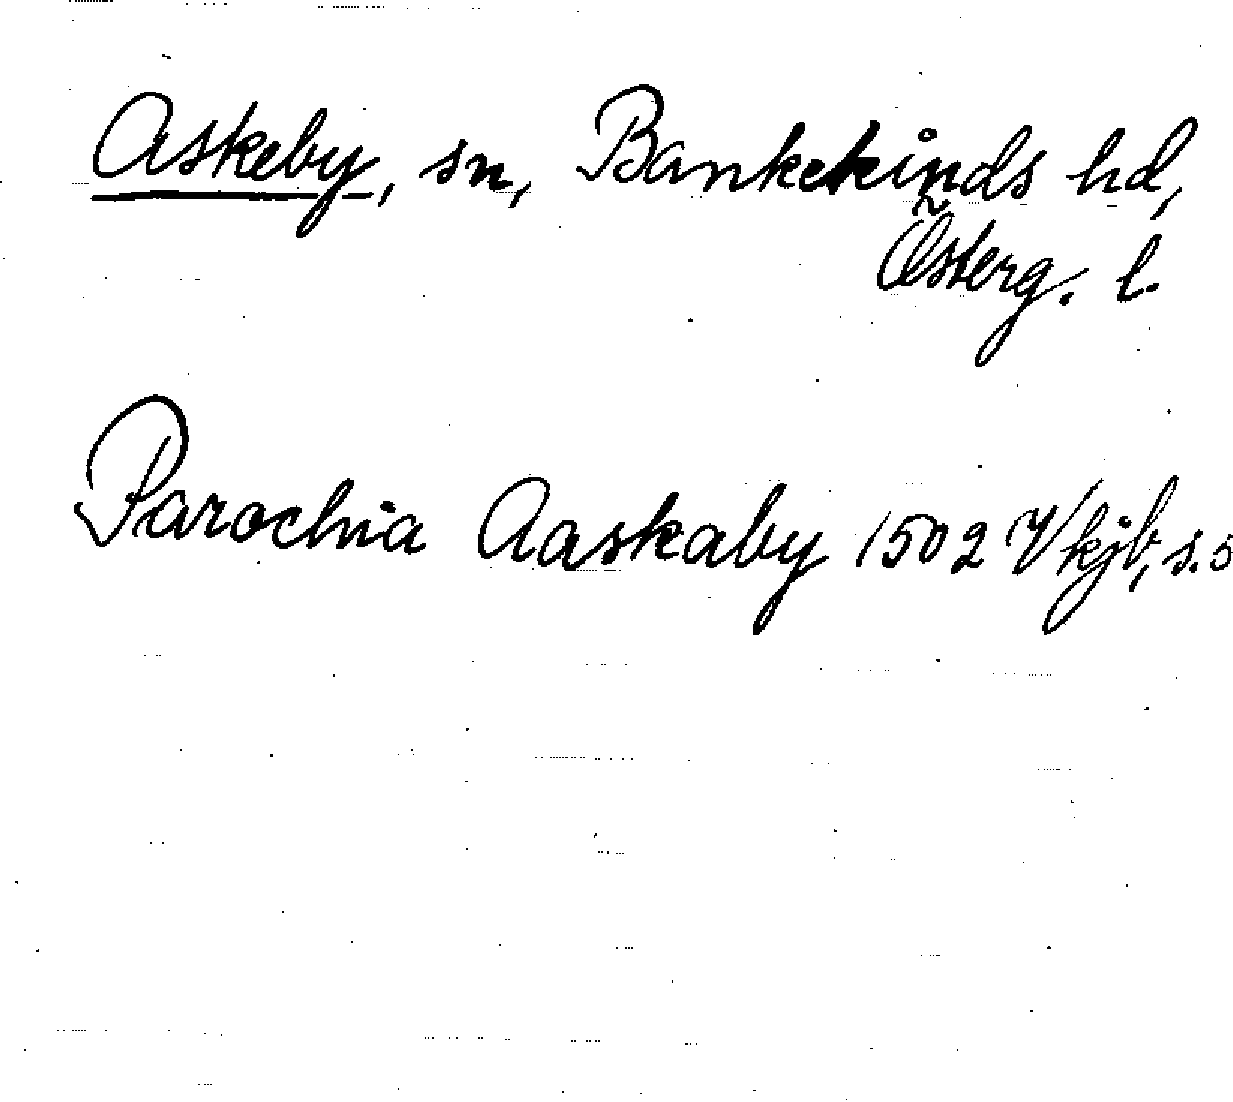 Askeby, sn, Bankekinds hd,
Österg. l.
Parochia Aaskaby 1502 Vkjb, s. 5